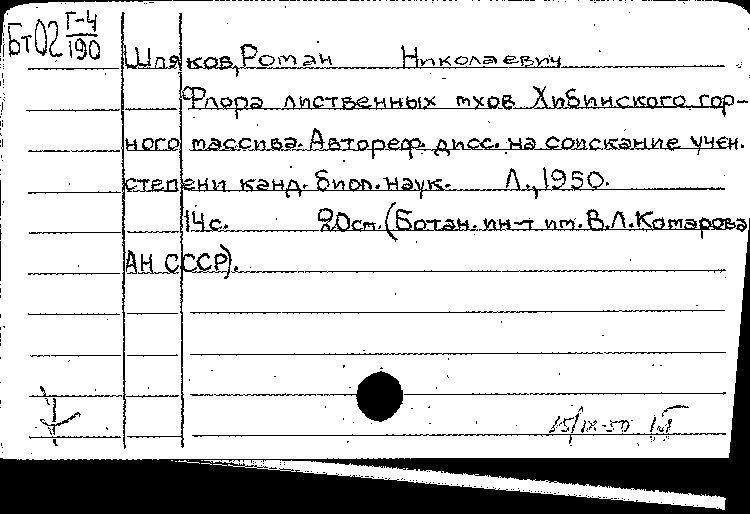 Бт02 Г-4
190
Шляков, Роман Николаевич
Флора лиственных мхов Хибинского гор-
ного массива. Автореф. дисс. на соискание учен.
степени канд. биол. наук. Л., 1950.
14 с. 20 см. (Ботан. ин-т им. В.Л. Комарова
АН СССР).
15/IX-50